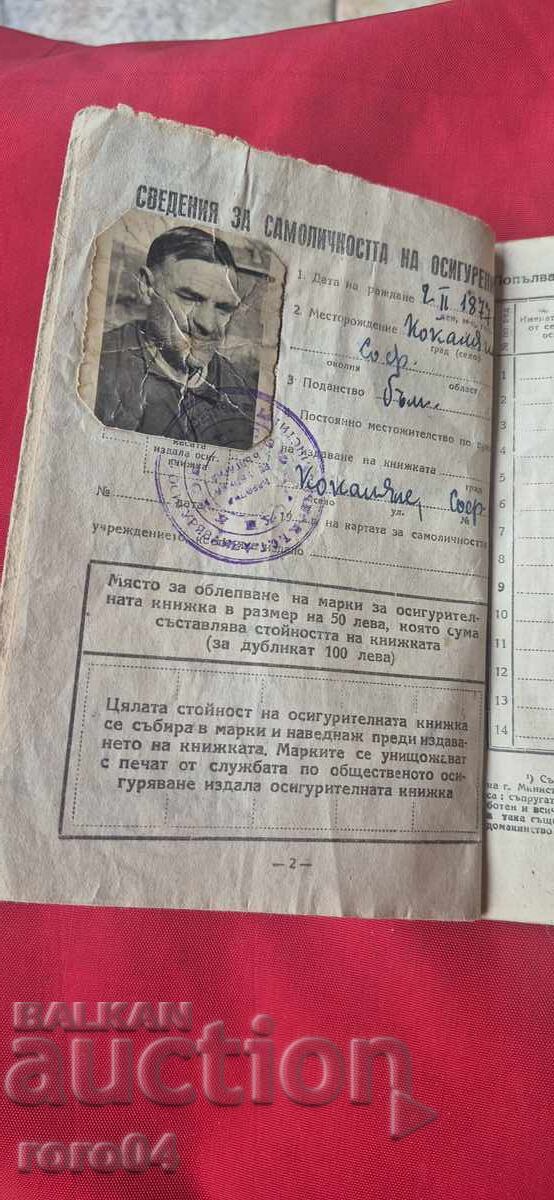 СВЕДЕНИЯ ЗА САМОЛИЧНОСТТА НА ОСИГУРЕН
1. Дата на раждане 2. II. 187
2. Месторождение Кокаляне
град (село)
Соф.
околия област
3 Поданство бълг.
Постоянно местожителство по
на издаване на книжката
град
Кокаляне, Соф.
село ул. №
издала осиг.
книжка
№ дата 19 на картата за самоличност
учреждението, което е издало
Място за облепване на марки за осигурител-
ната книжка в размер на 50 лева, която сума
съставлява стойността на книжката
(за дубликат 100 лева)
Цялата стойност на осигурителната книжка
се събира в марки и наведнаж преди издава-
нето на книжката. Марките се унищожават
с печат от службата по общественото оси-
гуряване издала осигурителната книжка
— 2 —
Попълва
№ по ред
Имената
от се
1
2
3
4
5
9
10
11
12
13
14
¹) Съ
на г. Минист
са: съпругат
ботен и вси
в така същ
домакинство
BALKAN
auction
roro04